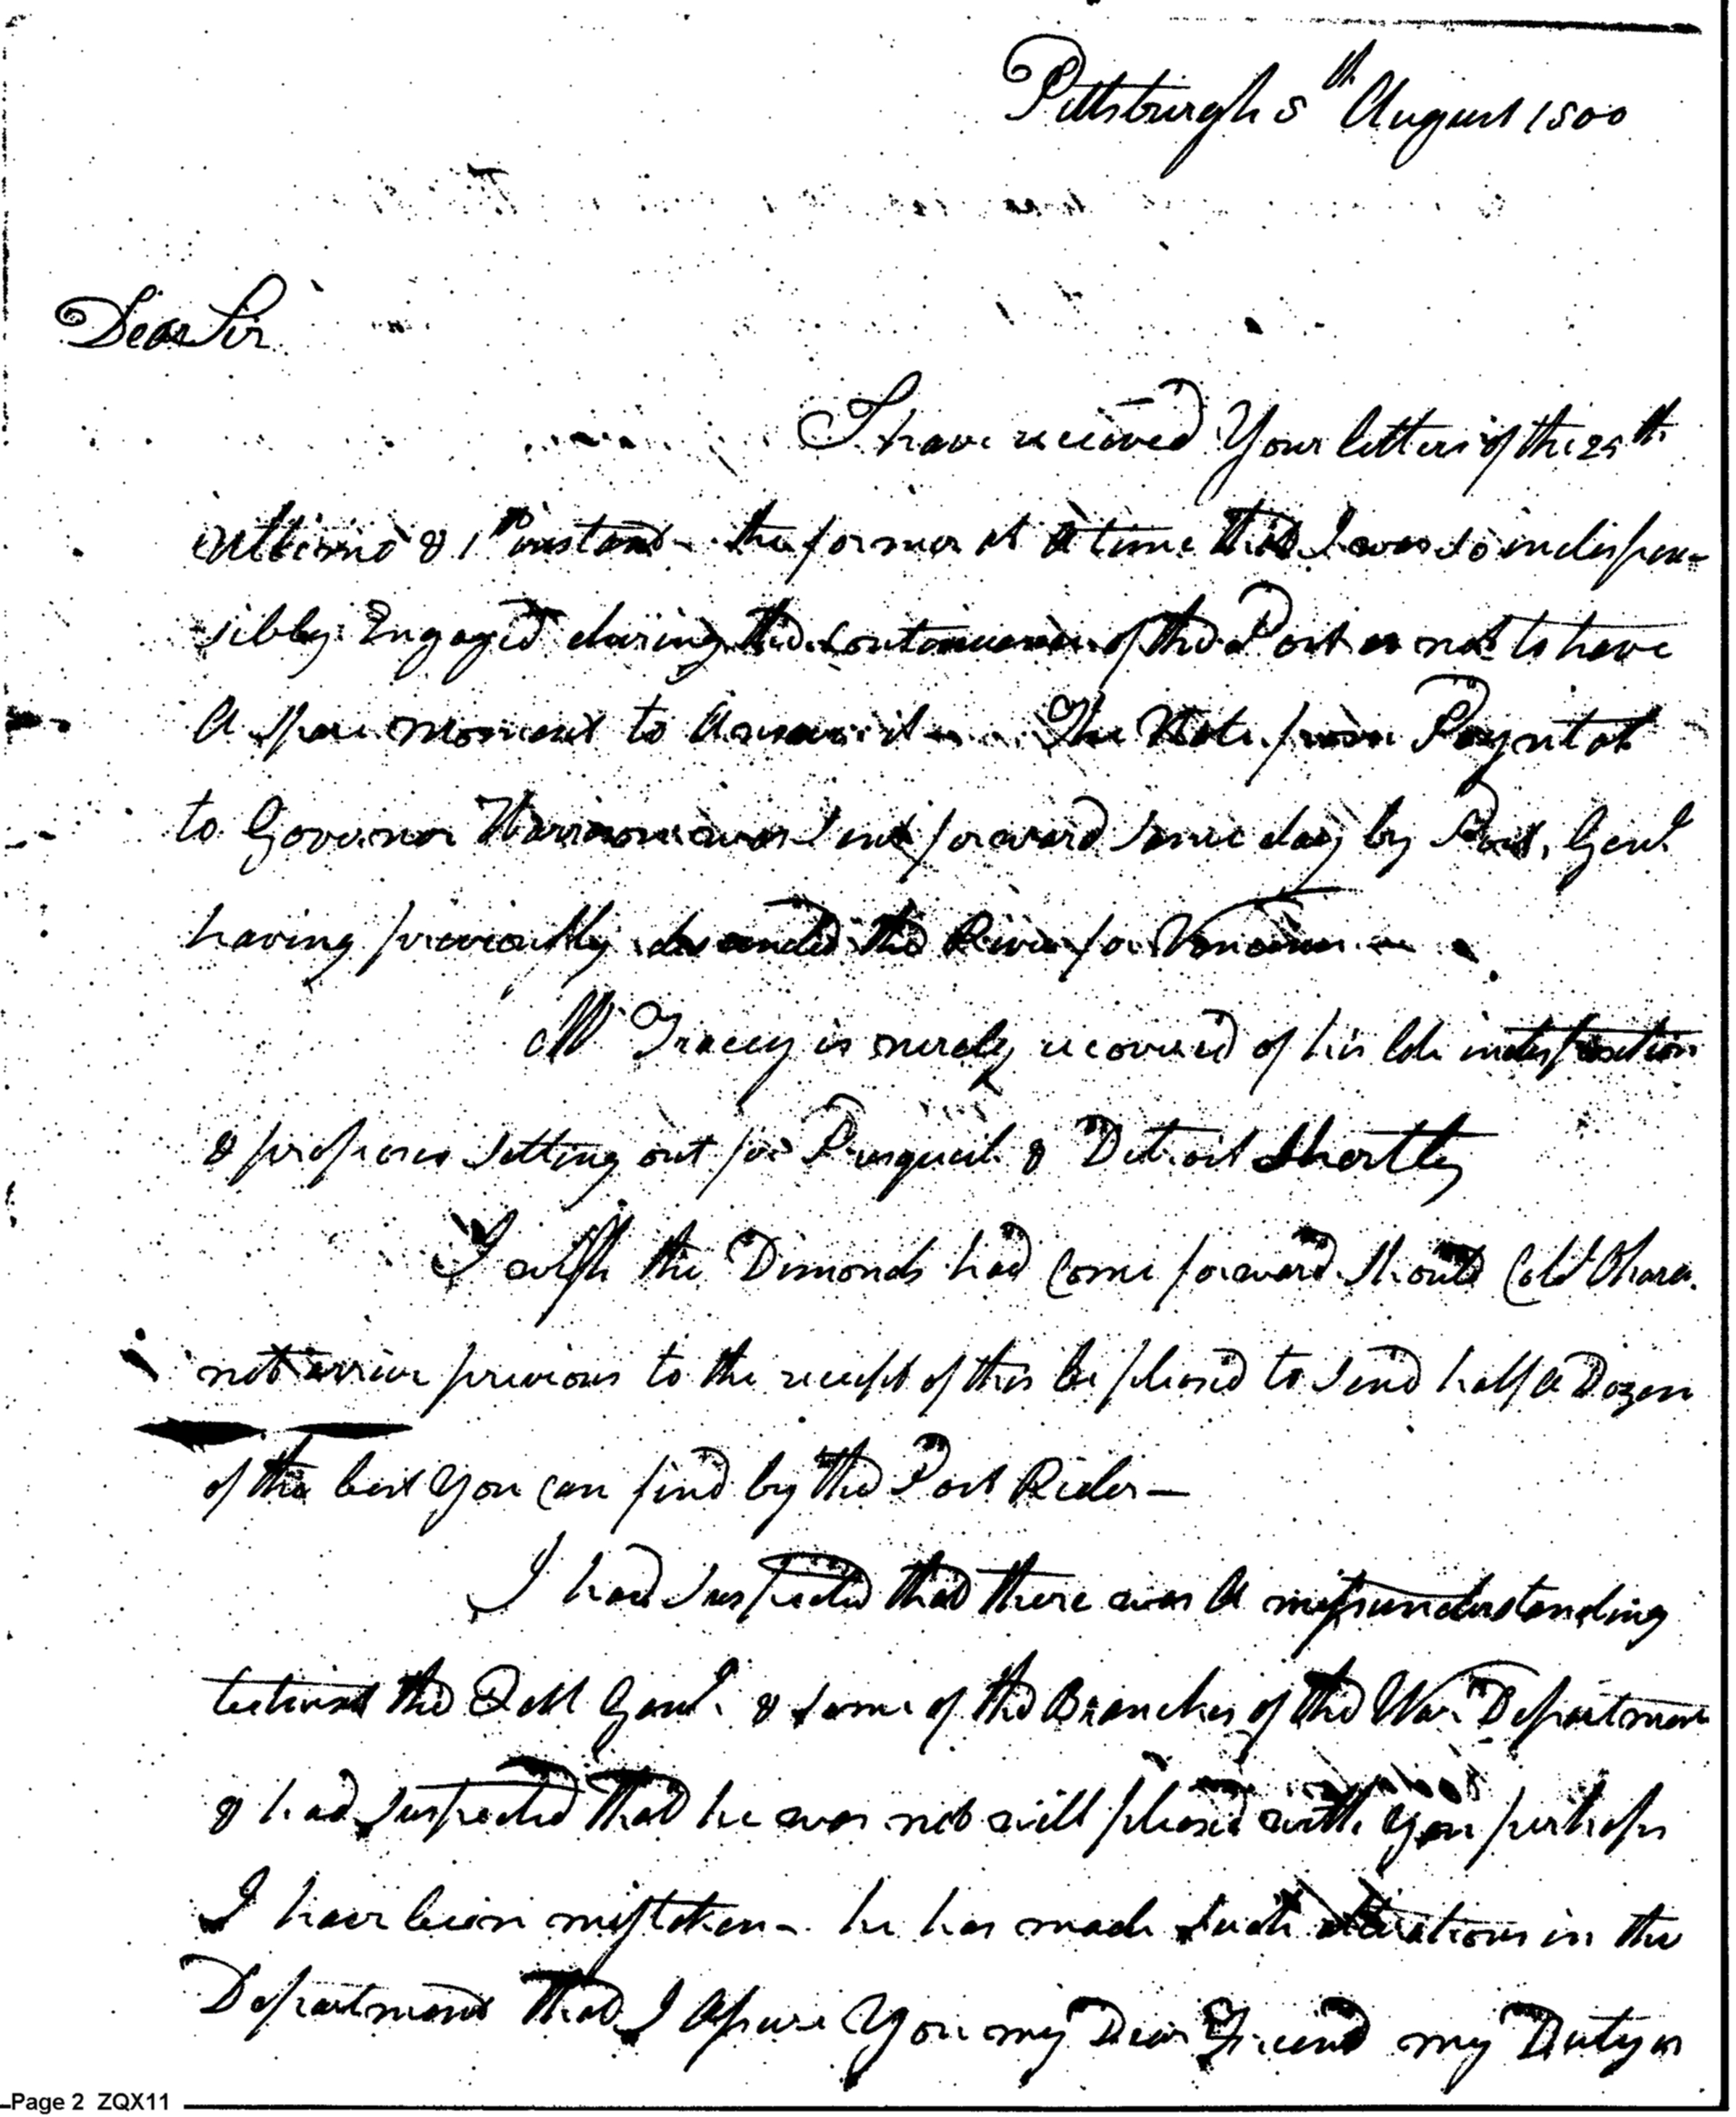 Pittsburgh 8th August 1800
Dear Sir
I have received Your letters of the 25th
ultimo & 1st instant - the former at a time that I was so indispen-
sibly Engaged during the continuance of the Post as not to have
A spare moment to Answer it - The Note from Poyntal
to Governor Harrison was sent forward same day by Post, Genl
having previously descended the River for
Mr Tracey is nearly recovered of his late indisposition
& proposes setting out for Presqueile & Detroit Shortly
I wish the Dimonds had come forward. should Colo Ohara
not arrive previous to the receipt of this be pleased to send half a Dozen
of the best you can find by the Post Rider -
I had suspected that there was a misunderstanding
between the QrM Genl. & some of the Branches of the War Department
& had suspected that he was not well pleased with you perhaps
I have been mistaken - he has made such alterations in the
Department that I assure You my Dear Friend my Duty is
Page 2 ZQX11